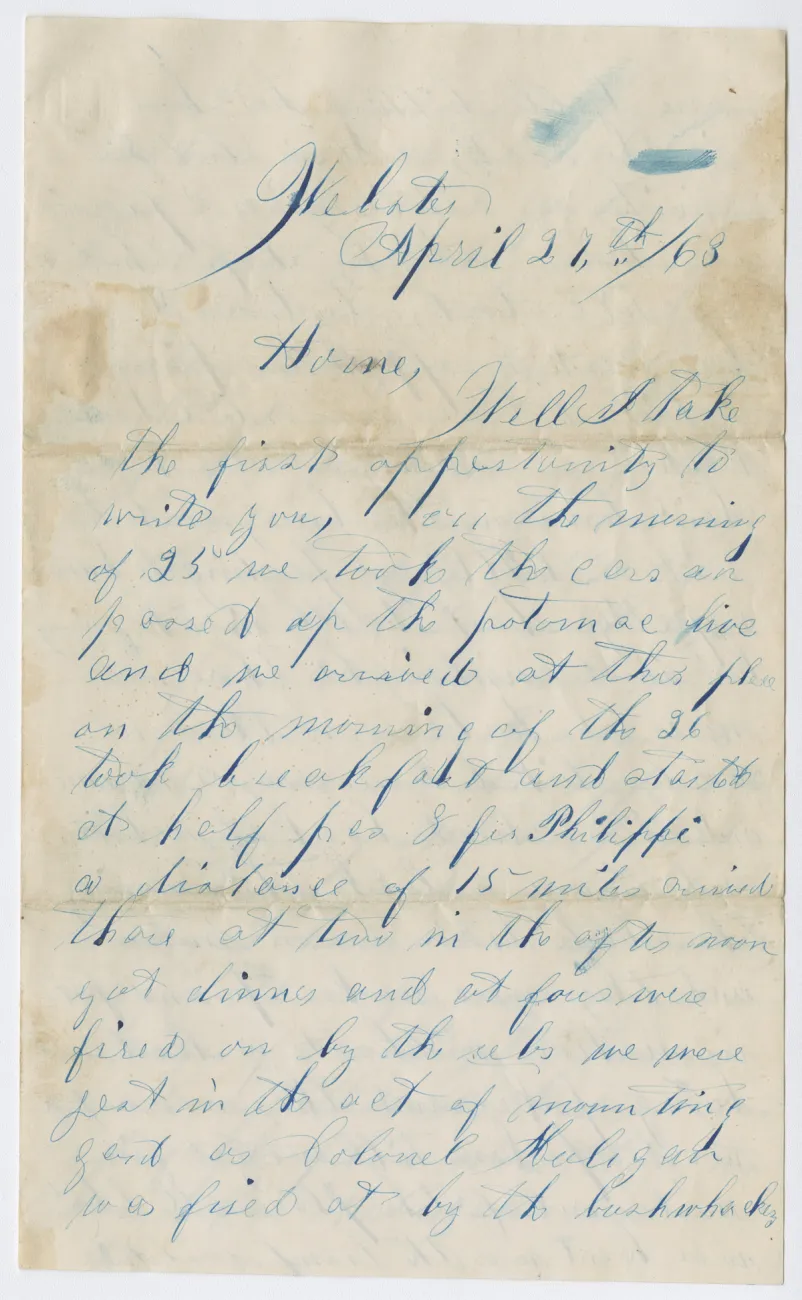 Webster
April 27,th/63
Home,
Well I take
the first oppertunity to
write you, on the morning
of 25 we took the cars an
passed up the potomac live
and we arrived at this place
on the morning of the 26
took breakfast and started
at half pas 8 for Philippi
a distance of 15 miles arived
thare at two in the after noon
got dinner and at four were
fired on by the rebs we were
jest in the act of mounting
gard as Colonel Muligan
was fired at by the bushwhackers